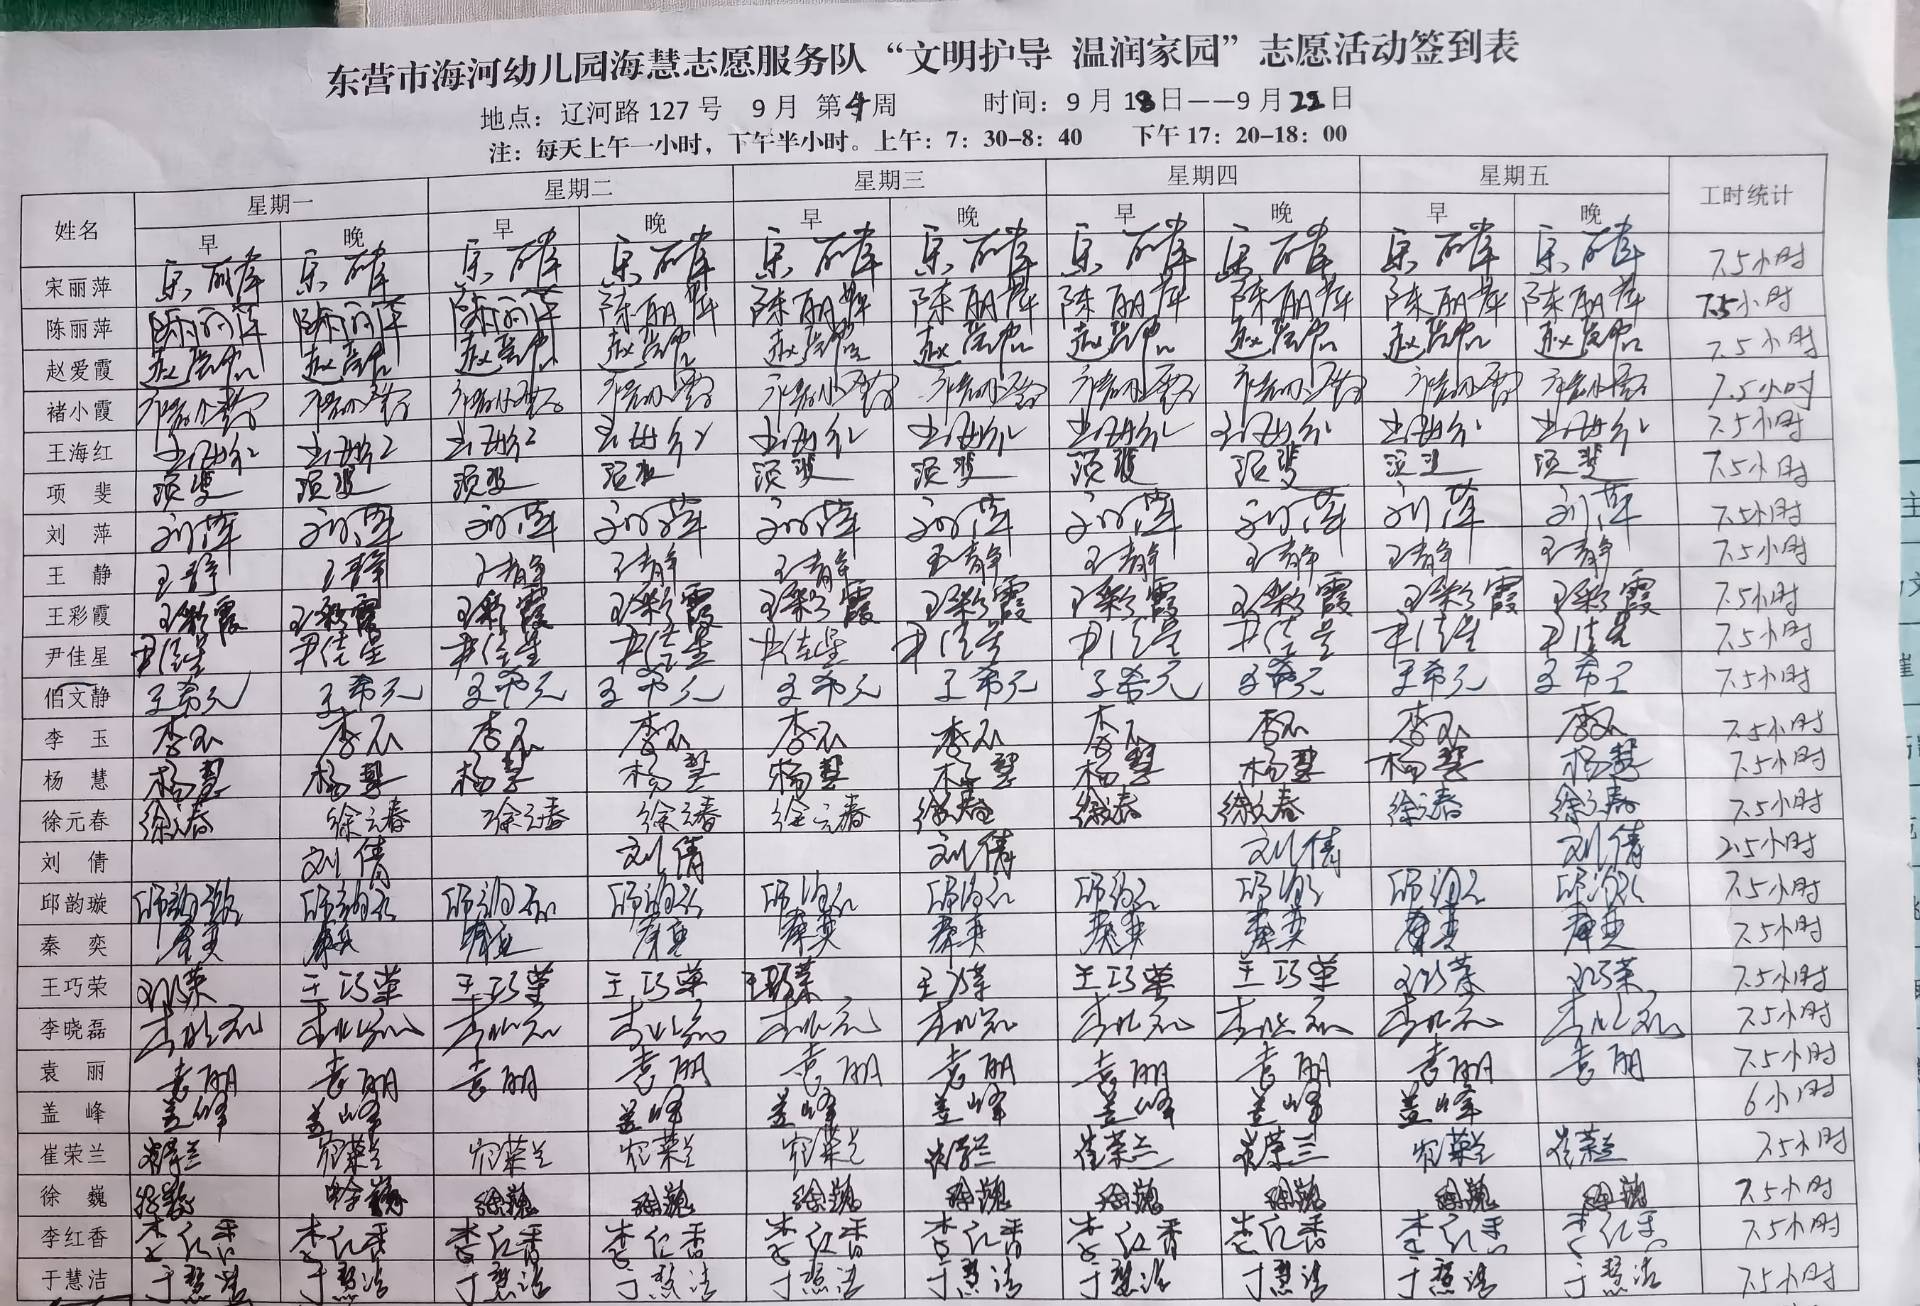 东营市海河幼儿园海慧志愿服务队“文明护导 温润家园”志愿活动签到表
地点：辽河路127号 9月 第4周 时间：9月18日——9月22日
注：每天上午一小时，下午半小时。上午：7：30-8：40 下午17：20-18：00
姓名 星期一 星期二 星期三 星期四 星期五 工时统计
早 晚 早 晚 早 晚 早 晚 早 晚
宋丽萍 宋丽萍 宋丽萍 宋丽萍 宋丽萍 宋丽萍 宋丽萍 宋丽萍 宋丽萍 宋丽萍 宋丽萍 7.5小时
陈丽萍 陈丽萍 陈丽萍 陈丽萍 陈丽萍 陈丽萍 陈丽萍 陈丽萍 陈丽萍 陈丽萍 陈丽萍 7.5小时
赵爱霞 赵爱霞 赵爱霞 赵爱霞 赵爱霞 赵爱霞 赵爱霞 赵爱霞 赵爱霞 赵爱霞 赵爱霞 7.5小时
褚小霞 褚小霞 褚小霞 褚小霞 褚小霞 褚小霞 褚小霞 褚小霞 褚小霞 褚小霞 褚小霞 7.5小时
王海红 王海红 王海红 王海红 王海红 王海红 王海红 王海红 王海红 王海红 王海红 7.5小时
项斐 项斐 项斐 项斐 项斐 项斐 项斐 项斐 项斐 项斐 项斐 7.5小时
刘萍 刘萍 刘萍 刘萍 刘萍 刘萍 刘萍 刘萍 刘萍 刘萍 刘萍 7.5小时
王静 王静 王静 王静 王静 王静 王静 王静 王静 王静 王静 7.5小时
王彩霞 王彩霞 王彩霞 王彩霞 王彩霞 王彩霞 王彩霞 王彩霞 王彩霞 王彩霞 王彩霞 7.5小时
尹佳星 尹佳星 尹佳星 尹佳星 尹佳星 尹佳星 尹佳星 尹佳星 尹佳星 尹佳星 尹佳星 7.5小时
佀文静 王希元 王希元 王希元 王希元 王希元 王希元 王希元 王希元 王希元 王希元 7.5小时
李玉 李玉 李玉 李玉 李玉 李玉 李玉 李玉 李玉 李玉 李玉 7.5小时
杨慧 杨慧 杨慧 杨慧 杨慧 杨慧 杨慧 杨慧 杨慧 杨慧 杨慧 7.5小时
徐元春 徐元春 徐元春 徐元春 徐元春 徐元春 徐元春 徐元春 徐元春 徐元春 徐元春 7.5小时
刘倩 刘倩 刘倩 刘倩 刘倩 刘倩 2.5小时
邱韵璇 邱韵璇 邱韵璇 邱韵璇 邱韵璇 邱韵璇 邱韵璇 邱韵璇 邱韵璇 邱韵璇 邱韵璇 7.5小时
秦奕 秦奕 秦奕 秦奕 秦奕 秦奕 秦奕 秦奕 秦奕 秦奕 秦奕 7.5小时
王巧荣 王巧荣 王巧荣 王巧荣 王巧荣 王巧荣 王巧荣 王巧荣 王巧荣 王巧荣 王巧荣 7.5小时
李晓磊 李晓磊 李晓磊 李晓磊 李晓磊 李晓磊 李晓磊 李晓磊 李晓磊 李晓磊 李晓磊 7.5小时
袁丽 袁丽 袁丽 袁丽 袁丽 袁丽 袁丽 袁丽 袁丽 袁丽 袁丽 7.5小时
盖峰 盖峰 盖峰 盖峰 盖峰 盖峰 盖峰 盖峰 盖峰 6小时
崔荣兰 崔荣兰 崔荣兰 崔荣兰 崔荣兰 崔荣兰 崔荣兰 崔荣兰 崔荣兰 崔荣兰 崔荣兰 7.5小时
徐巍 徐巍 徐巍 徐巍 徐巍 徐巍 徐巍 徐巍 徐巍 徐巍 徐巍 7.5小时
李红香 李红香 李红香 李红香 李红香 李红香 李红香 李红香 李红香 李红香 李红香 7.5小时
于慧洁 于慧洁 于慧洁 于慧洁 于慧洁 于慧洁 于慧洁 于慧洁 于慧洁 于慧洁 于慧洁 7.5小时